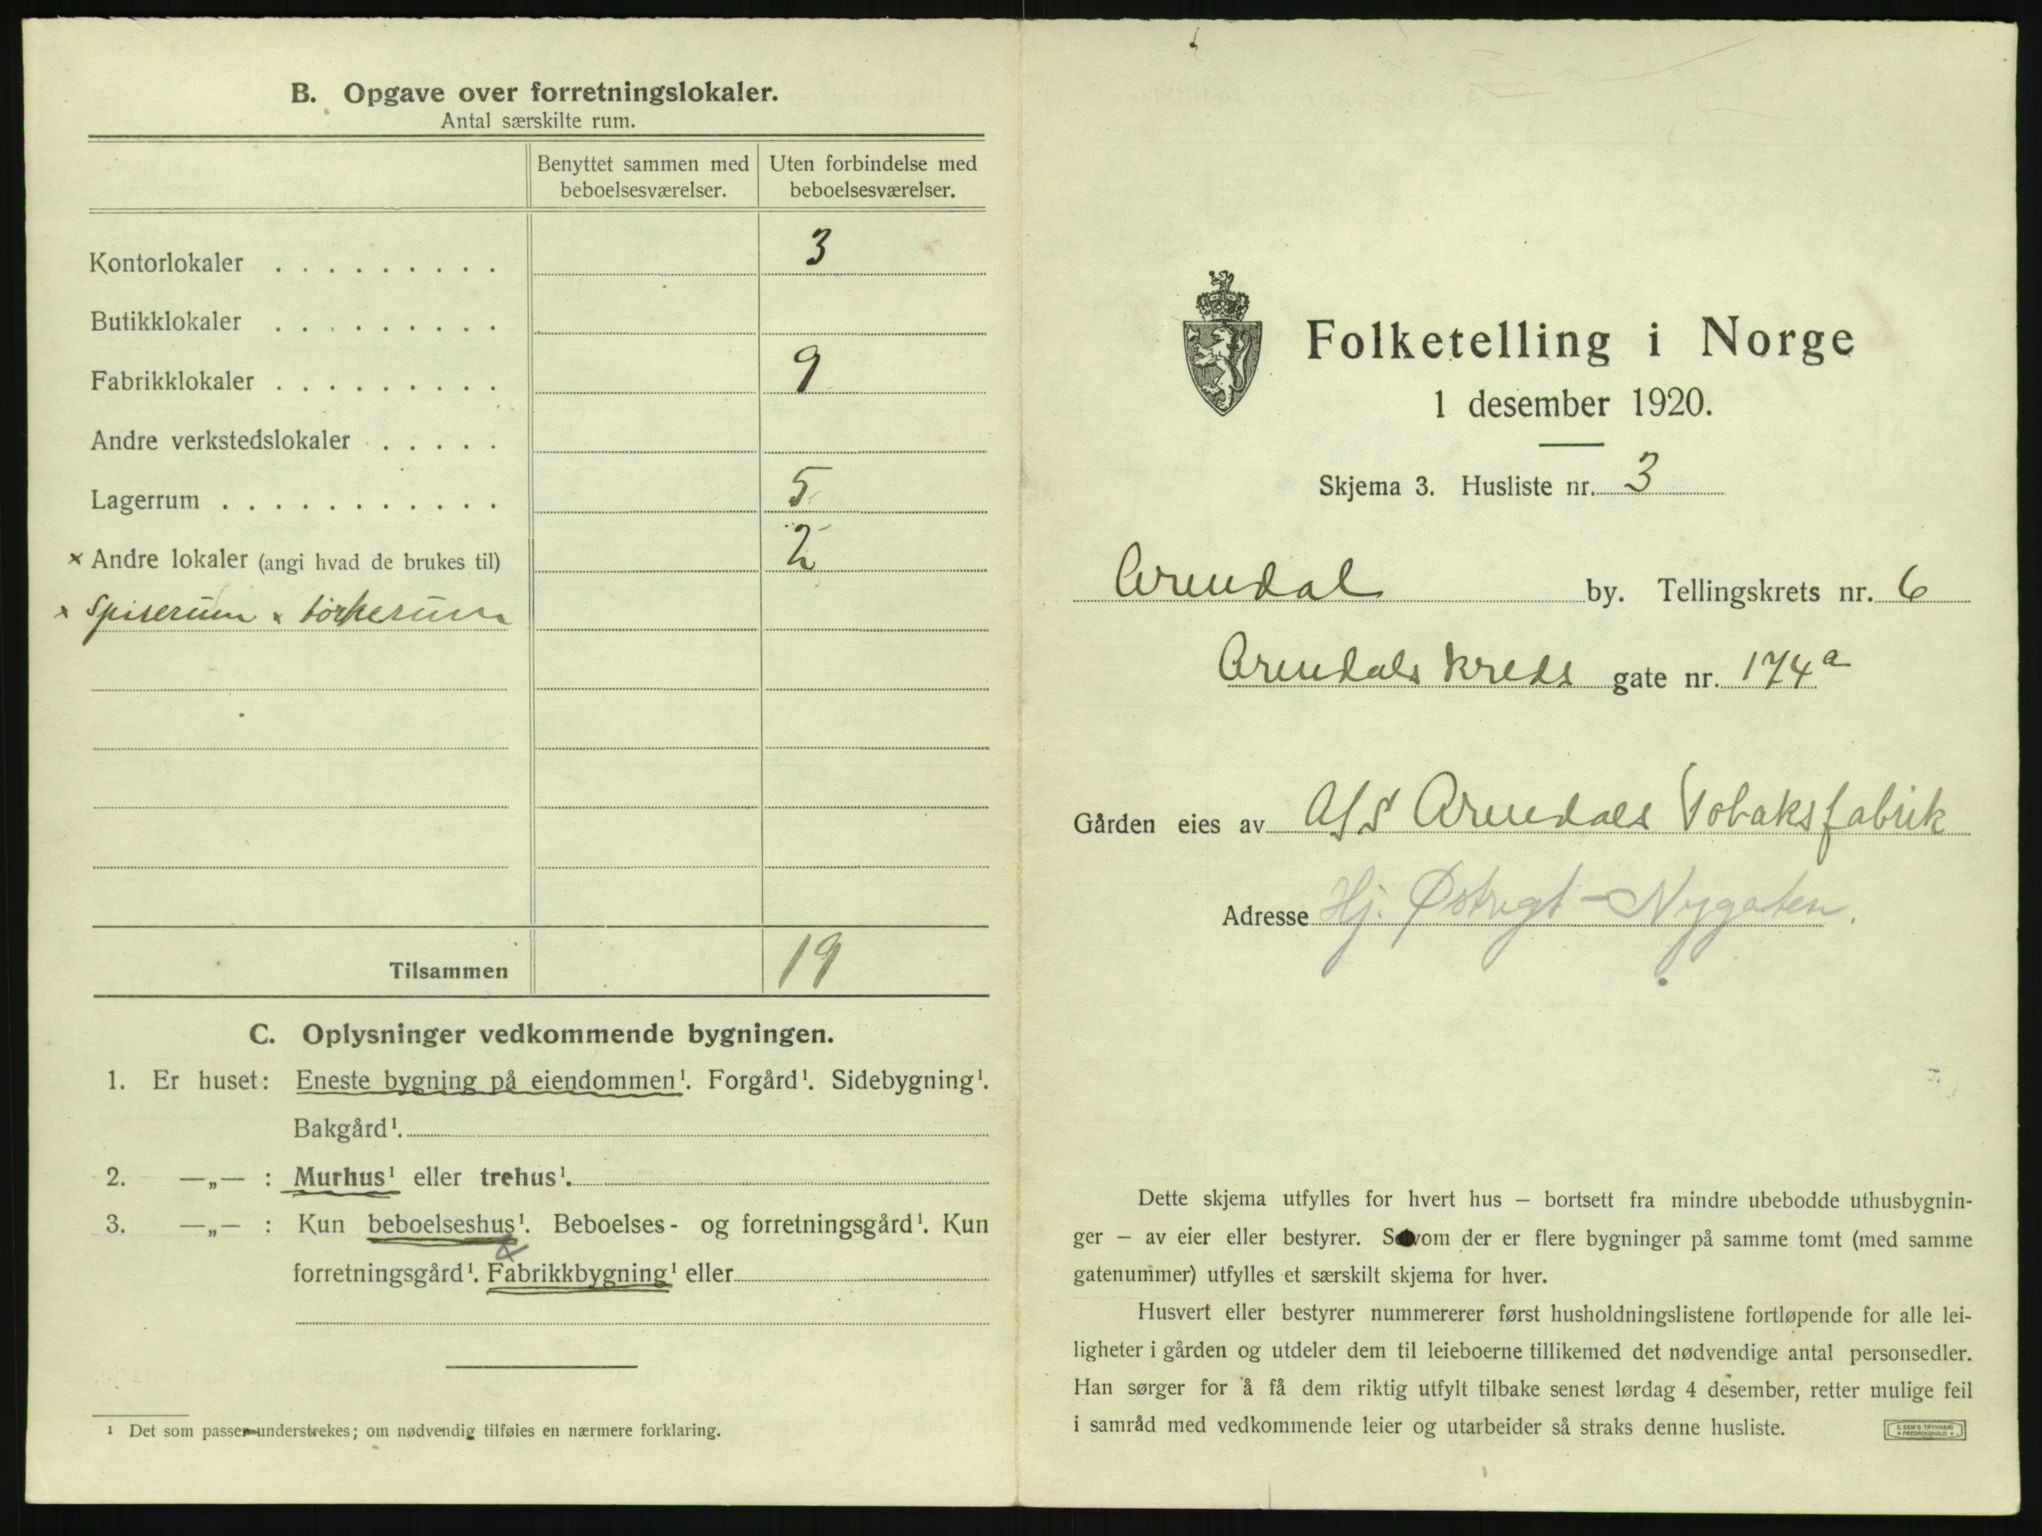 B. Opgave over forretningslokaler.
Antal særskilte rum.
Benyttet sammen med beboelsesværelser.
Uten forbindelse med beboelsesværelser.
Kontorlokaler . . . . . . . . . 3
Butikklokaler . . . . . . . . .
Fabrikklokaler . . . . . . . . . 9
Andre verkstedslokaler . . . . .
Lagerrum . . . . . . . . . . . 5
× Andre lokaler (angi hvad de brukes til) 2
× Spiserum × tørkerum
Tilsammen 19
C. Oplysninger vedkommende bygningen.
1. Er huset: Eneste bygning på eiendommen¹. Forgård¹. Sidebygning¹.
Bakgård¹.
2. —„— : Murhus¹ eller trehus¹.
3. —„— : Kun beboelseshus¹. Beboelses- og forretningsgård¹. Kun
forretningsgård¹. Fabrikkbygning¹ eller
¹ Det som passer understrekes; om nødvendig tilføies en nærmere forklaring.
Folketelling i Norge
1 desember 1920.
Skjema 3. Husliste nr. 3
Arendal by. Tellingskrets nr. 6
Arendals kreds gate nr. 174a
Gården eies av A/S Arendals Tobaksfabrik
Adresse Hj. Østregt - Nygaten.
Dette skjema utfylles for hvert hus – bortsett fra mindre ubebodde uthusbygnin-
ger – av eier eller bestyrer. Såvom der er flere bygninger på samme tomt (med samme
gatenummer) utfylles et særskilt skjema for hver.
Husvert eller bestyrer nummererer først husholdningslistene fortløpende for alle lei-
ligheter i gården og utdeler dem til leieboerne tillikemed det nødvendige antal personsedler.
Han sørger for å få dem riktig utfylt tilbake senest lørdag 4 desember, retter mulige feil
i samråd med vedkommende leier og utarbeider så straks denne husliste.